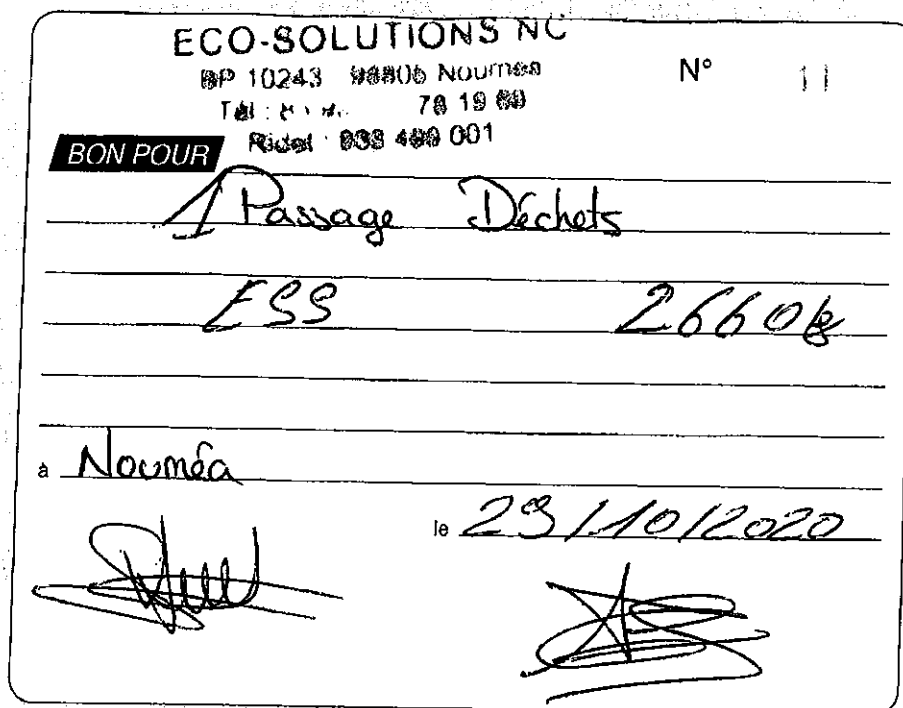 ECO-SOLUTIONS NC
BP 10243 98805 Nouméa
N° 11
Tél : 78 19 69
Ridet : 499 001
BON POUR
1 Passage Déchets
ESS 2660
à Nouméa
le 29/10/2020